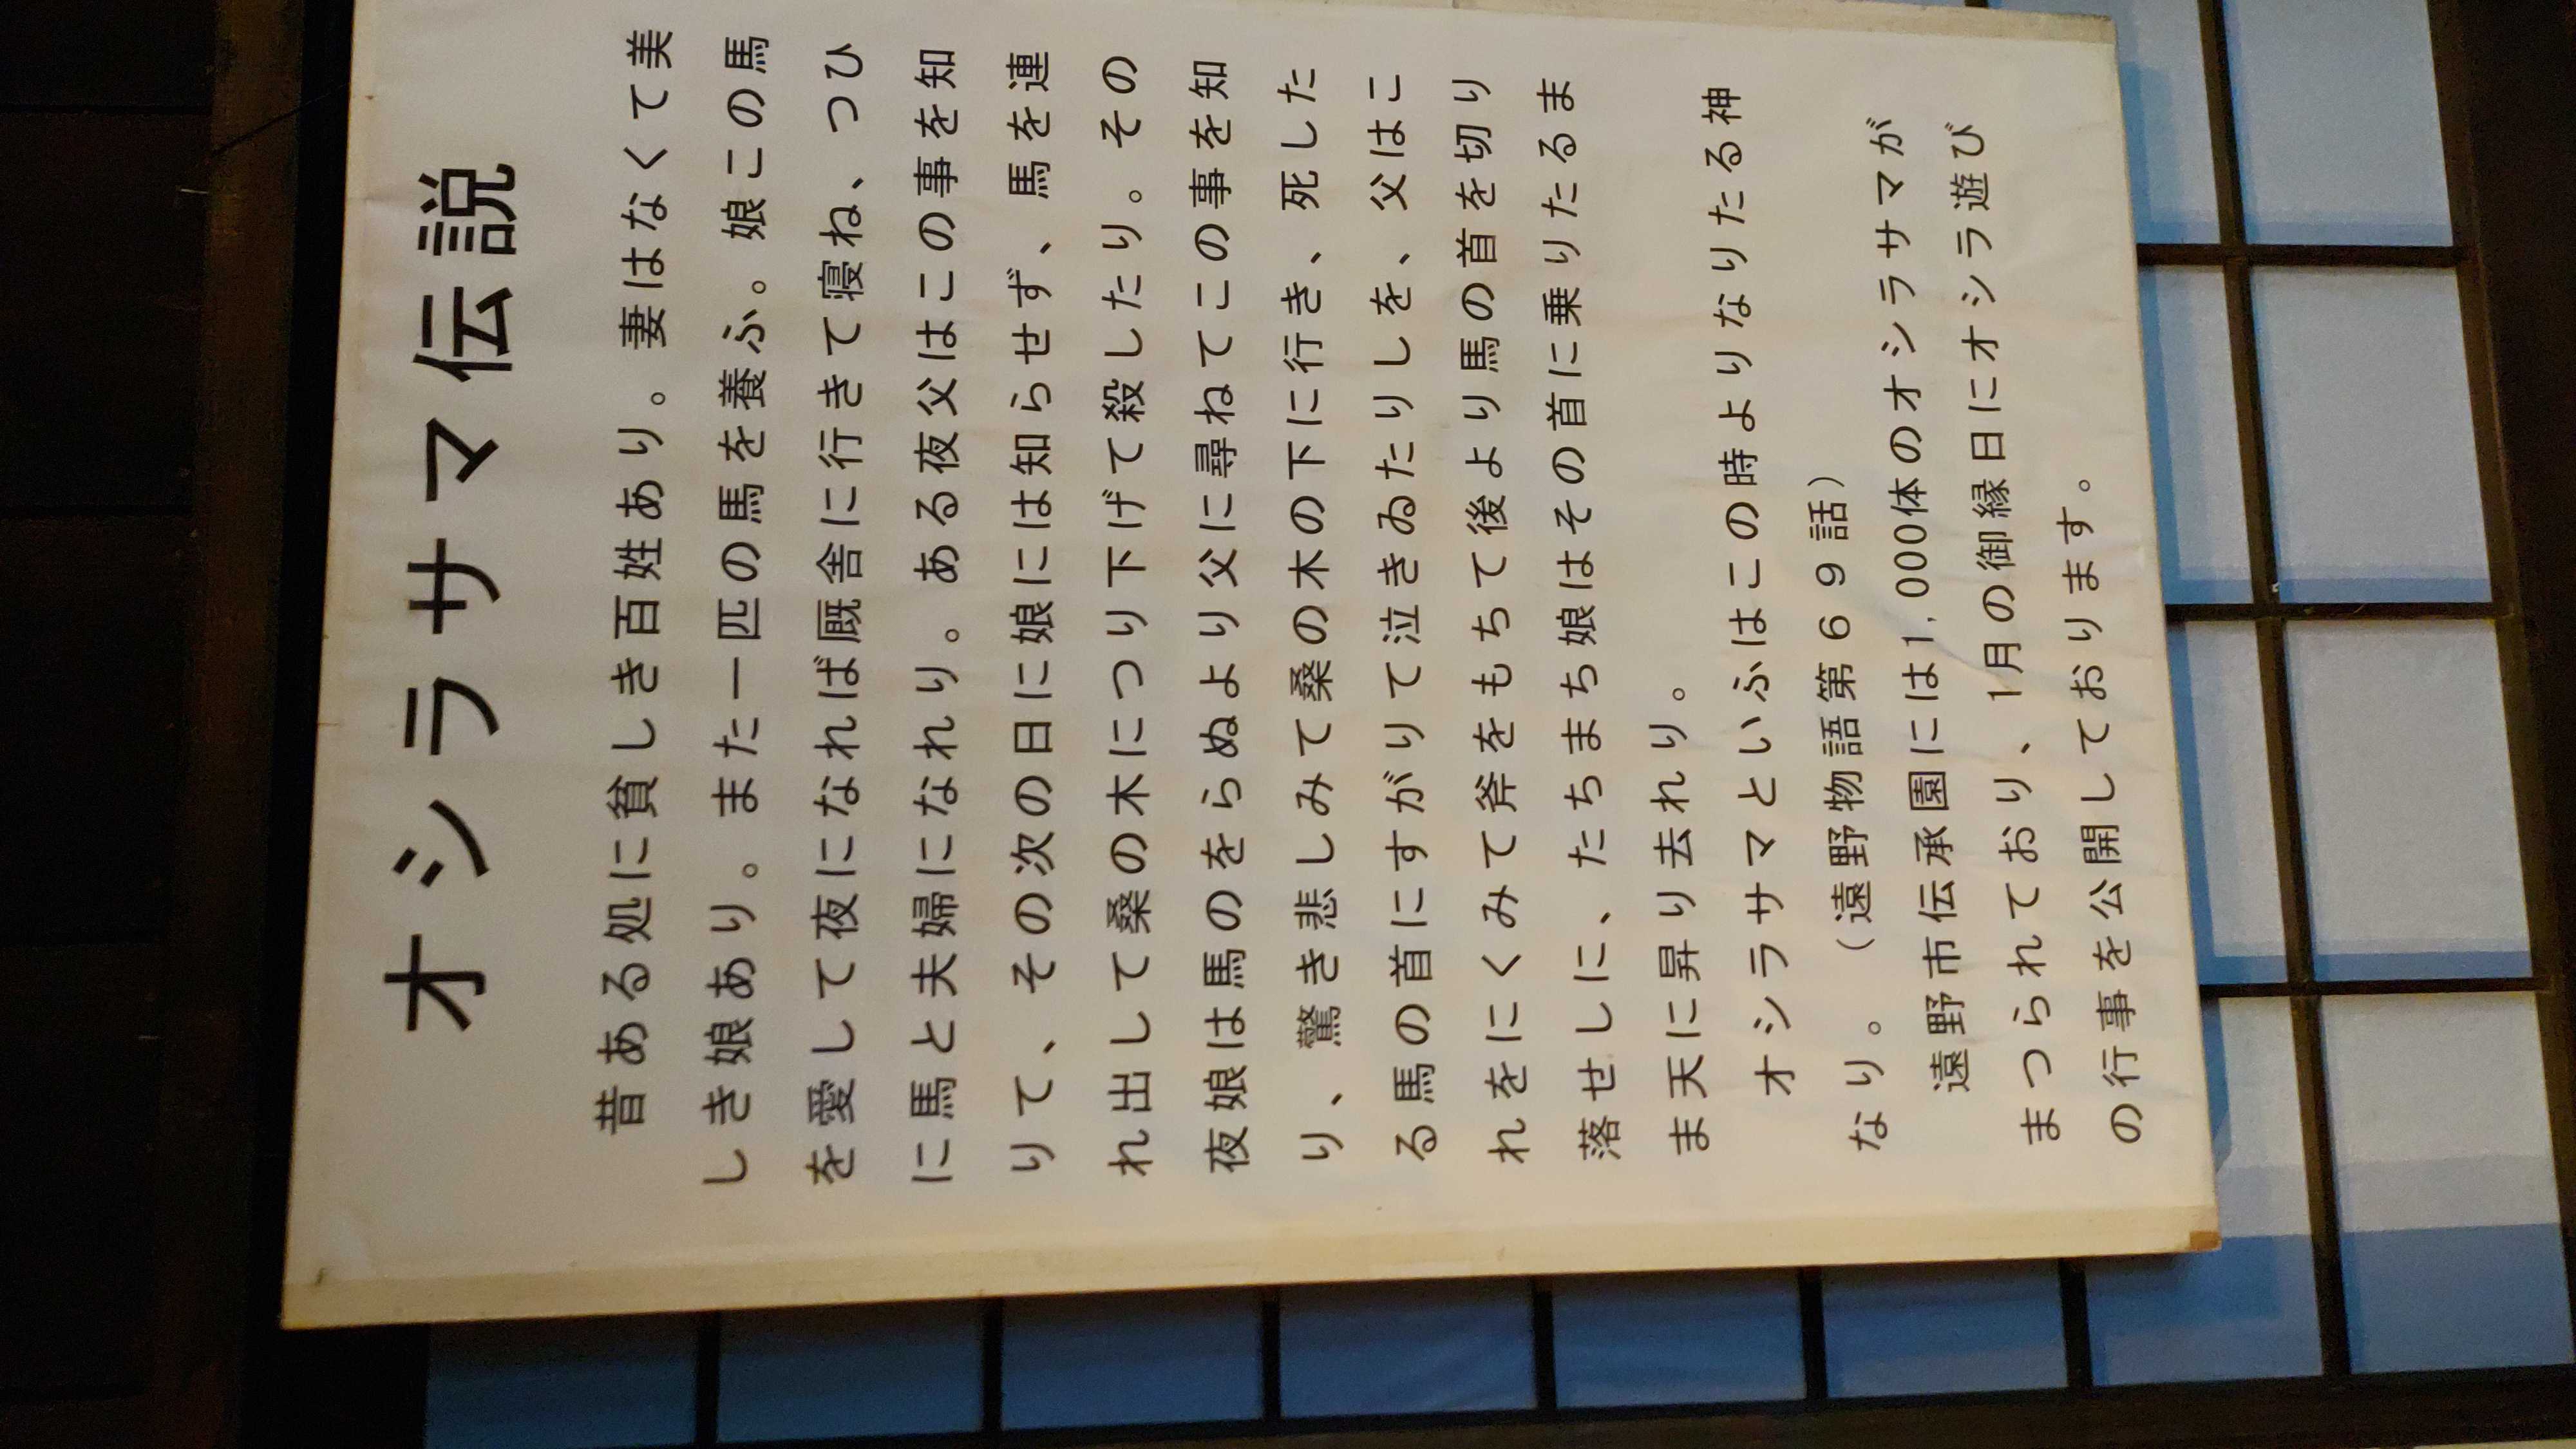 オシラサマ伝説
昔ある処に貧しき百姓あり。妻はなくて美
しき娘あり。また一匹の馬を養ふ。娘この馬
を愛して夜になれば厩舎に行きて寝ね、つひ
に馬と夫婦になれり。ある夜父はこの事を知
りて、その次の日に娘には知らせず、馬を連
れ出して桑の木につり下げて殺したり。その
夜娘は馬のをらぬより父に尋ねてこの事を知
り、驚き悲しみて桑の木の下に行き、死した
る馬の首にすがりて泣きゐたりしを、父はこ
れをにくみて斧をもちて後より馬の首を切り
落せしに、たちまち娘はその首に乗りたるま
ま天に昇り去れり。
オシラサマといふはこの時よりなりたる神
なり。（遠野物語第６９話）
遠野市伝承園には1,000体のオシラサマが
まつられており、1月の御縁日にオシラ遊び
の行事を公開しております。